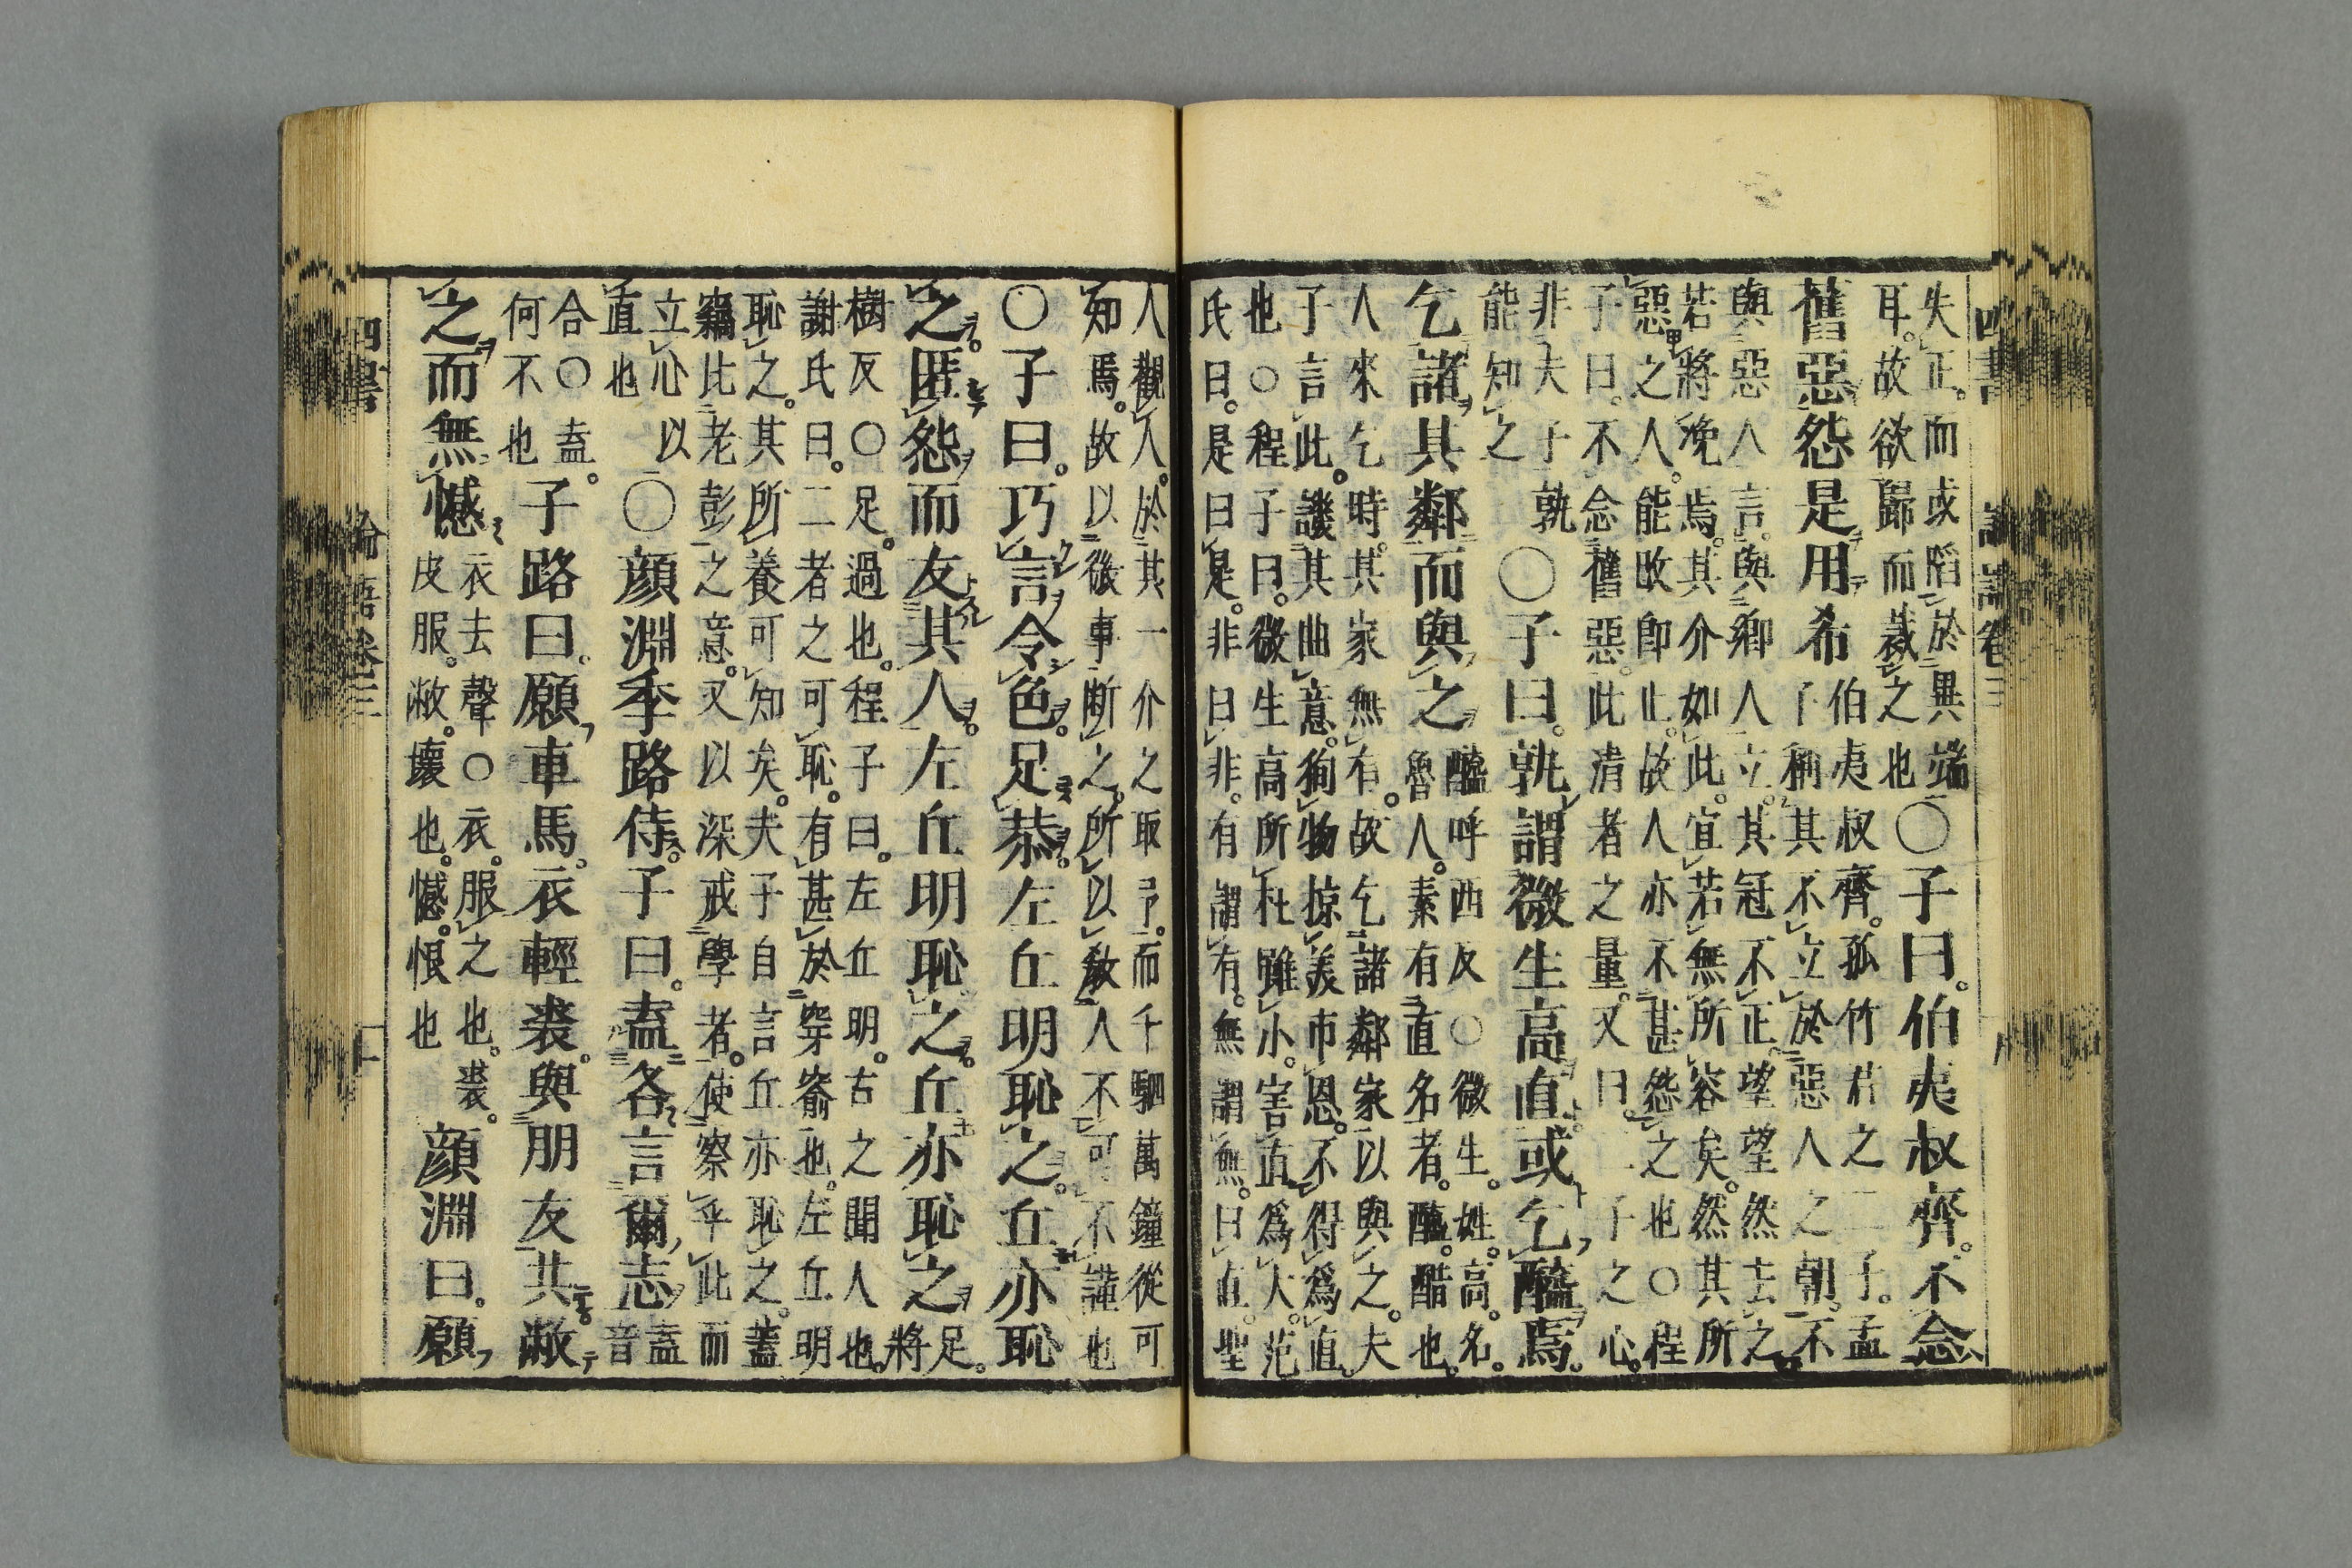 四書　論語卷三
失正。而或䧟於異端
耳。故欲歸而裁之也
〇子曰。伯夷叔齊。不念
舊惡怨是用希
伯夷叔齊。孤竹君之二子。孟
子稱其不立於惡人之朝。不
與惡人言。與郷人立。其冠不正。望望然去之
若將浼焉。其介如此。宜若無所容矣。然其所
惡之人。能改即止。故人亦不甚怨之也〇程
子曰。不念舊惡。此清者之量。又曰。二子之心。
非夫子孰
能知之
〇子曰。孰謂微生高直。或乞醯焉。
乞諸其鄰而與之
醯呼西反〇微生。姓。高。名。
魯人。素有直名者。醯。醋也。
人來乞時。其家無有。故乞諸鄰家以與之。夫
子言此。譏其曲意。狥物掠美市恩。不得爲直。
也〇程子曰。微生高所枉雖小。害直爲大。范
氏曰。是曰是。非曰非。有謂有。無謂無。曰直。聖
人觀人。於其一介之取予。而千駟萬鐘從可
知焉。故以微事斷之。所以敎人不可不謹也
〇子曰。巧言令色。足恭。左丘明恥之。丘亦恥
之。匿怨而友其人。左丘明恥之。丘亦恥之
足。
將
樹反〇足。過也。程子曰。左丘明。古之聞人也。
謝氏曰。二者之可恥。有甚於穿窬也。左丘明
恥之。其所養可知矣。夫子自言丘亦恥之。蓋
竊比老彭之意。又以深戒學者。使察乎此而
立心以
直也
〇顔淵季路侍。子曰。盍各言爾志
盍
音
合〇盍。
何不也
子路曰。願車馬。衣輕裘。與朋友共。敝
之而無憾
衣去聲〇衣。服之也。裘。
皮服。敝。壞也。憾。恨也
顔淵曰。願
四書　論語卷三